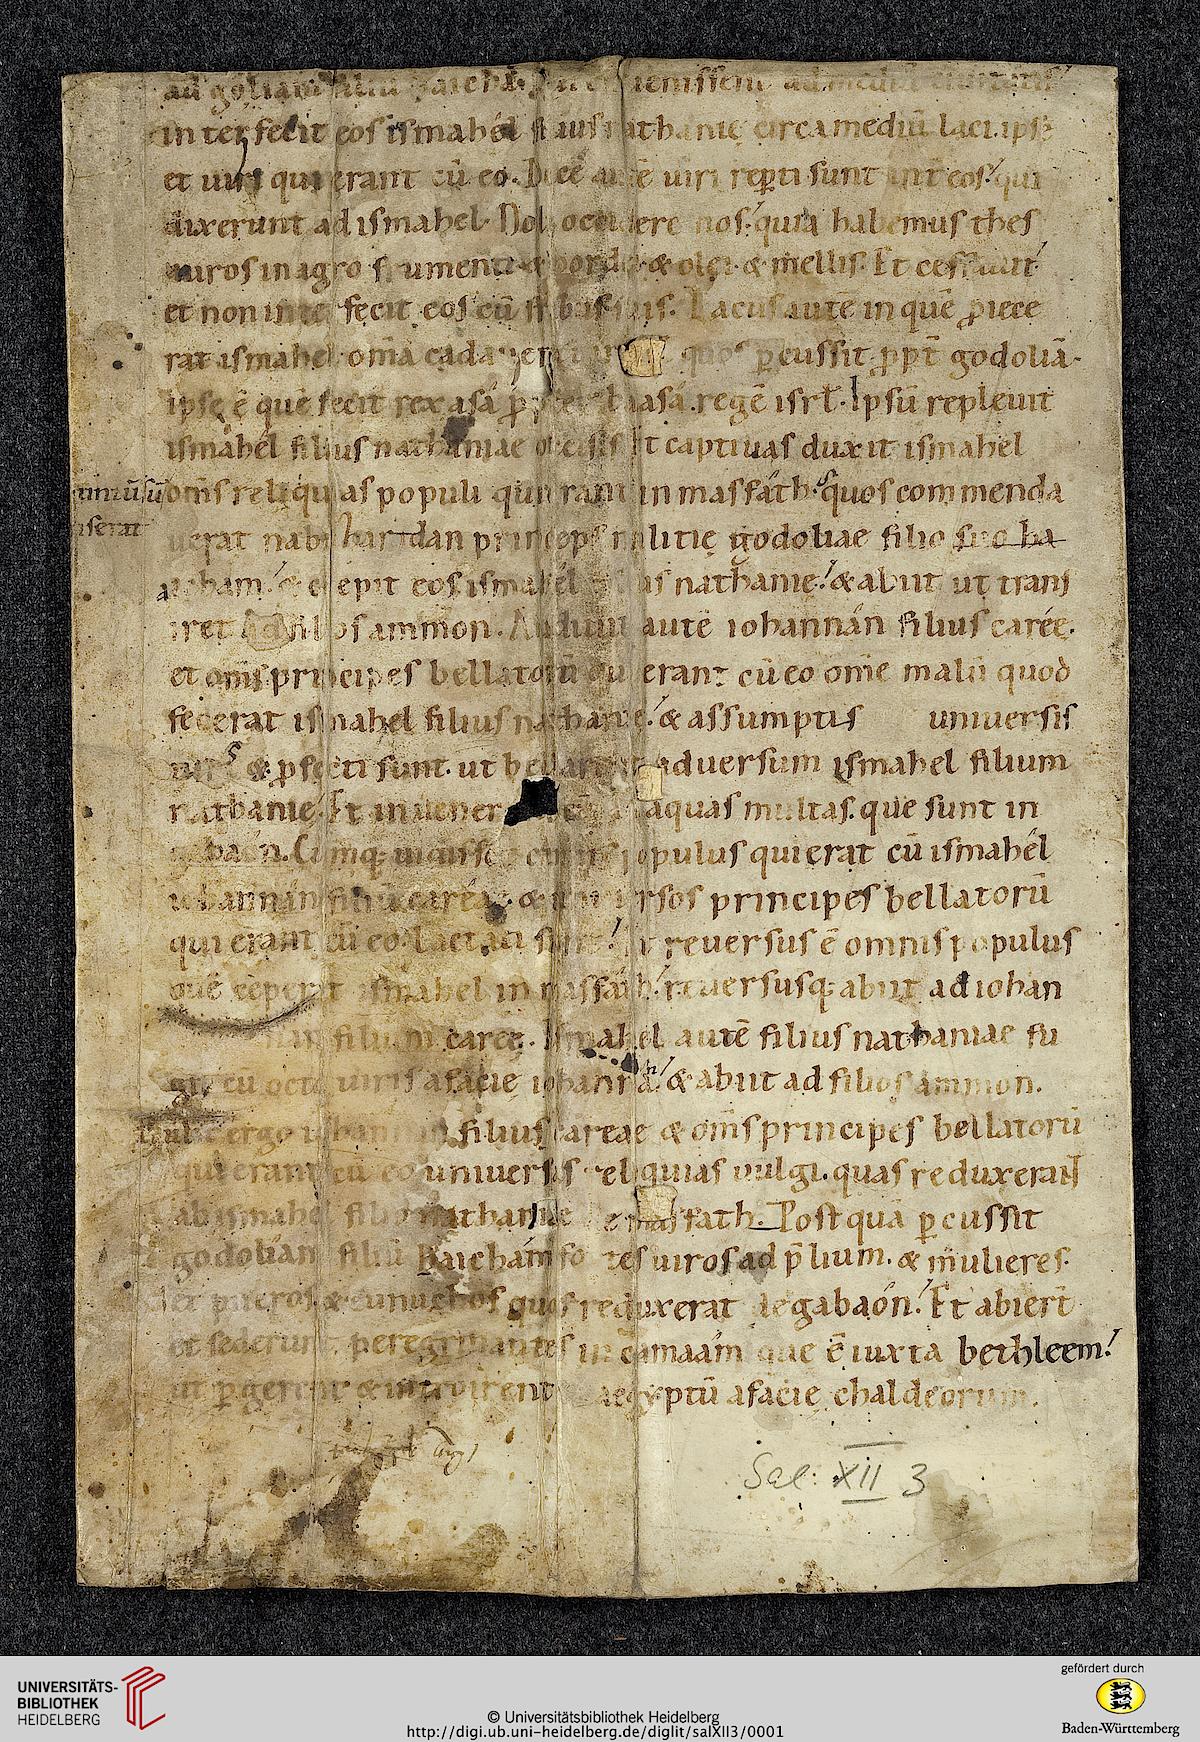 ad goliam filiũ
in terfecit eos ismahél filius nathanię circa mediũ laci. ipse
et uiri qui erant cũ eo. Decē autē uiri rep̱ti sunt int̄ eos. qui
dixerunt ad ismahel. Noli occidere nos. quia habemus thes
auros in agro frumenti & hordei & olei & mellis. Et cessauit
et non inter fecit eos cũ fribus suis. Lacus autē in quē ꝓiece
rat ismahel om̄a cadauera quos ꝑcussit ꝓpt̄ godoliā.
ipsę ē quē fecit rex asá baasá. regē isrł. Ipsũ repleuit
ismahél filius nathaniae occisis. Et captiuas duxit ismahel
om̄s reliquias populi qui erant in masfáth. quos commenda
uerat nabuzardan princeps militię godoliae filio suo ha
aicham. & cepit eos ismahél filius nathanię. & abiit ut trans
iret ad filios ammon. Audiuit autē iohannán filius carée.
et om̄s principes bellatorũ qui erant cũ eo om̄e malũ quod
fecerat ismahel filius nathanię. & assumptis uniuersis
uiris & ꝓfecti sunt. ut bellarent aduersum ismahel filium
nathanię. Et inuener aquas multas. que sunt in
gabaón. Cũmq; uidisset populus qui erat cũ ismahél
iohannán filiũ carée & uniuersos principes bellatorũ
qui erant cũ eo. Laetati sunt. Et reuersus ē omnis populus
quē ceperat ismahel in massáth. reuersusq; abiit ad iohan
nan filium caree. Ismahel autē filius nathaniae fu
git cũ octo uiris a facie iohannā. & abiit ad filios ammon.
Tulit ergo iohannan filius careae & om̄s principes bellatorũ
qui erant cũ eo uniuersas reliquias uulgi. quas reduxerant
ab ismahel filio nathaniae de masfath. Postquā ꝑcussit
godolian filiũ haicham fortes uiros ad p̄lium. & mulieres.
et pueros & eunuchos quos reduxerat de gabaón. Et abiert̄
et sederunt peregrinantes in camaám que ē iuxta bethleem.
ut ꝑgerent & introirent aegyptũ a facię chaldeorum.
Sal: XII 3
UNIVERSITÄTS-
BIBLIOTHEK
HEIDELBERG
© Universitätsbibliothek Heidelberg
http://digi.ub.uni-heidelberg.de/diglit/salXII3/0001
gefördert durch
Baden-Württemberg